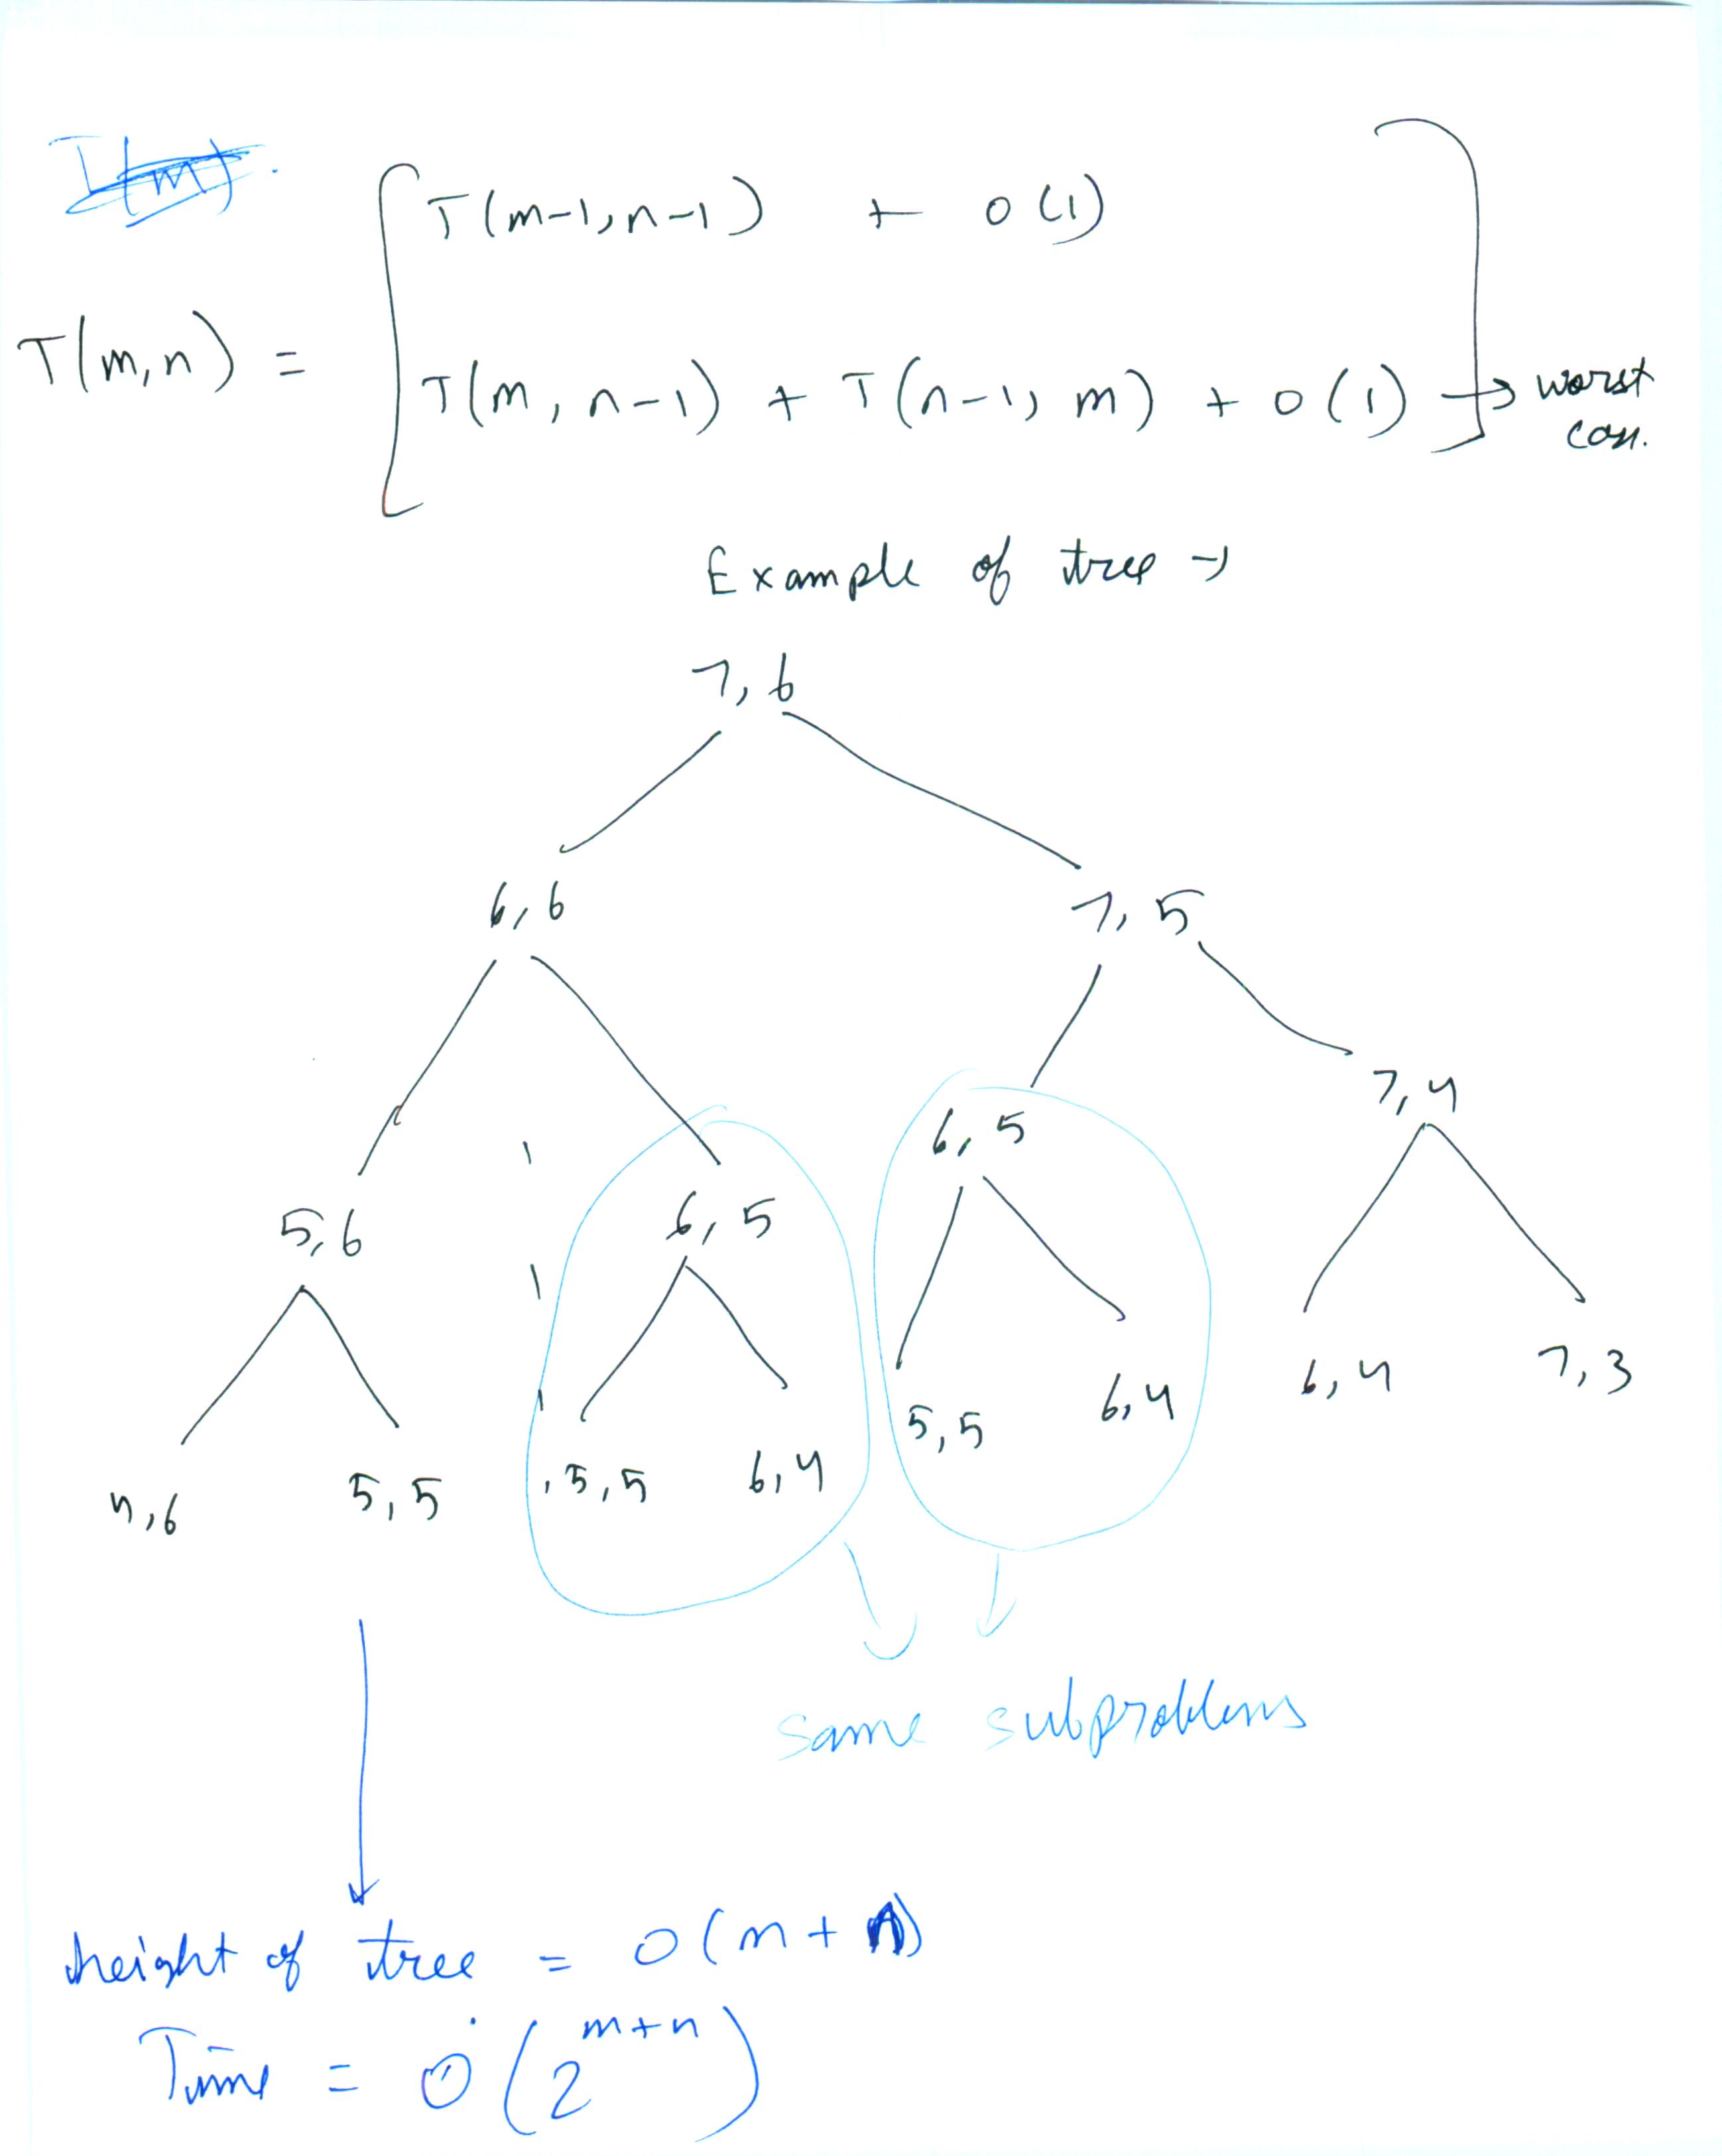 T(m).
T(m-1, n-1) + O(1)
T(m,n) =
T(m, n-1) + T(n-1, m) + O(1) → worst
case.
Example of tree →
7, 6
6, 6 7, 5
7, 4
6, 5
5, 6 6, 5
6, 4 7, 3
5, 5 6, 4
4, 6 5, 5 5, 5 6, 4
same subproblems
height of tree = O(m + n)
Time = O(2^{m+n})